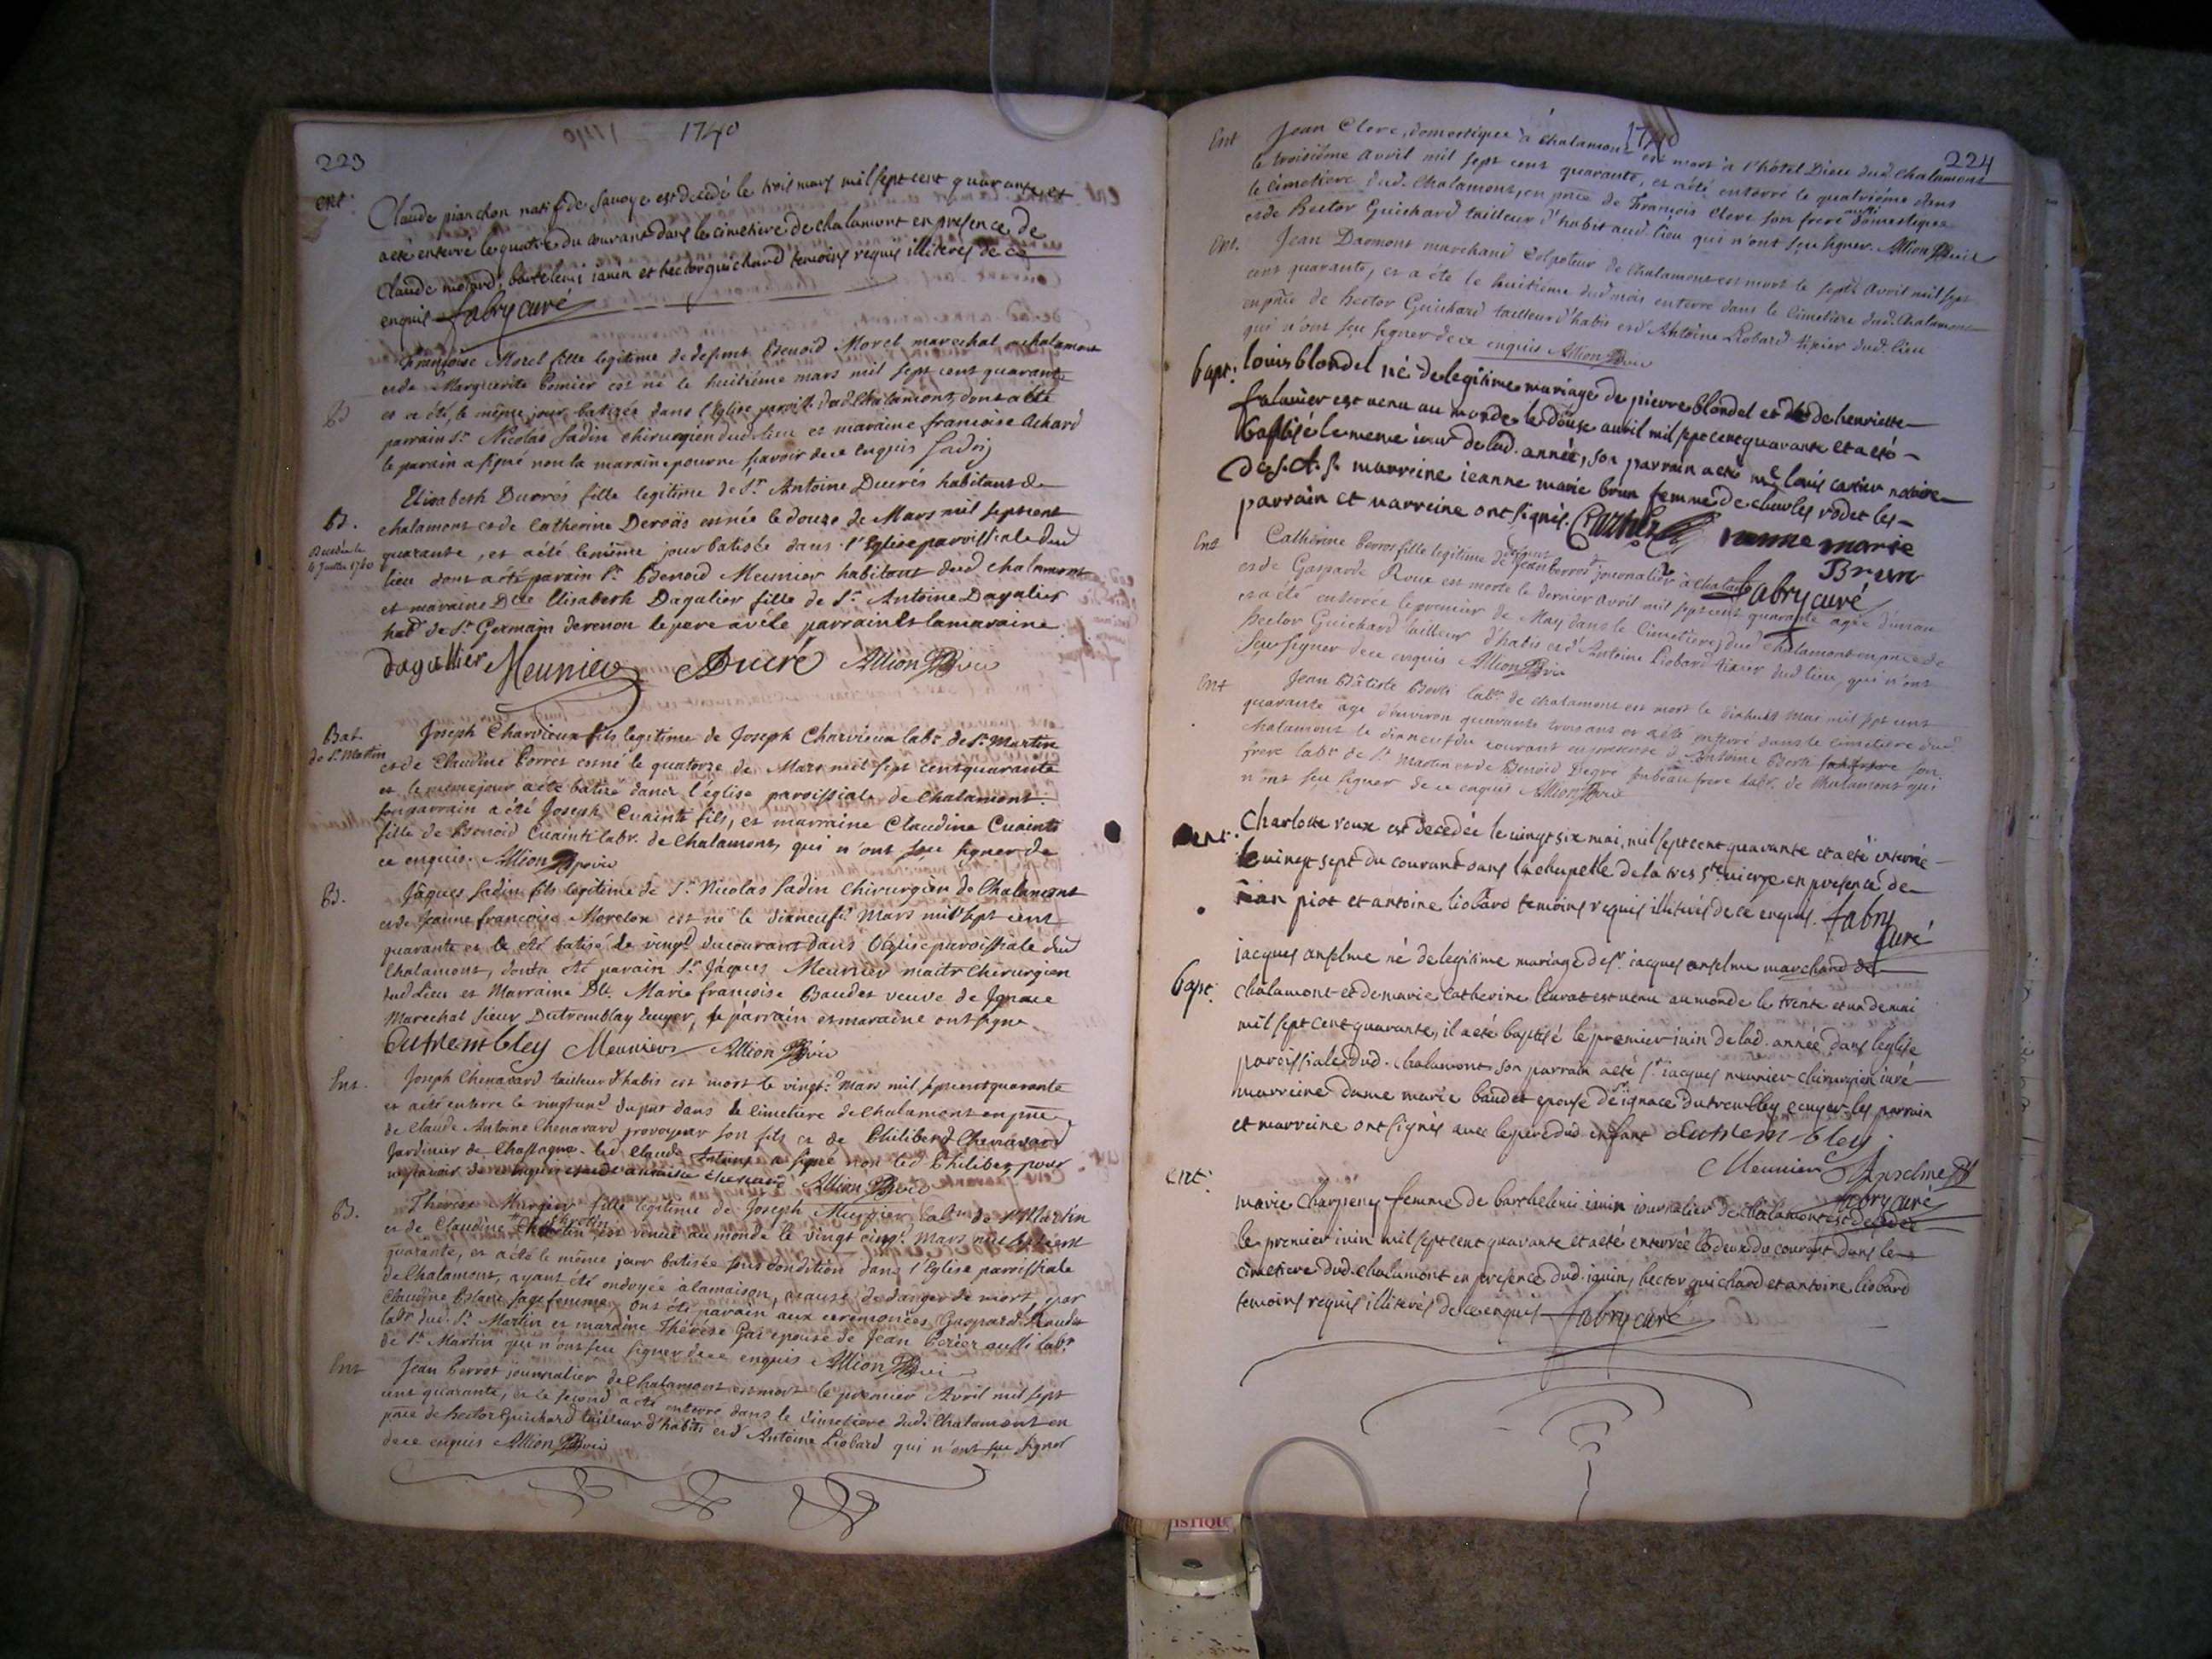 1740
223
ent.
Claude pianchon natif de Savoye est decedé le trois mars mil sept cent quarante et
aeté enterré le quatre du courant dans le cimetiere de chalamont en presence de
Claude motard, bartelemi ianin et hector guichard temoins requis illiterés de ce
enquis fabry curé
Françoise Morel fille legitime de defunt Benoid Morel marechal a chalamont
et de Marguerite Comier est né le huitiéme mars mil sept cent quarante
B
et a été le même jour batizée dans l'Eglise paroiss. dud. Chalamont, dont a été
parrain Sr. Nicolas Sadin chirurgien dud. lieu et maraine francoise Achard
le parain a signé non la maraine pour ne sçavoir de ce enquis Sadin
Elisabeth Ducrés fille legitime de Sr. Antoine Ducrés habitant de
B.
chalamont et de Catherine Deroüs est née le douze de Mars mil sept cent
Decedée le
4 Juillet 1740
quarante, et a été le même jour batisée dans l'Eglise paroissiale dud
lieu dont a été parain Sr. Benoid Meunier habitant dud chalamont
et maraine Dlle Elisabeth Dagalier fille de Sr. Antoine Dagalier
habt. de St. Germain de renon le pere avéc le parrain et la maraine
dagallier Meunier Ducré Allion vic
Bat.
de St. Martin
Joseph Charvieux fils legitime de Joseph Charvieux labr. de St. Martin
et de Claudine Perret est né le quatorze de Mars mil sept cent quarante
et le même jour a été batizé dans l'église paroissiale de Chalamont.
son parrain a été Joseph Cuainti fils, et marraine Claudine Cuainti
fille de Benoid Cuainti labr. de Chalamont, qui n'ont sçu signer de
ce enquis. Allion vic
B.
Jâques Sadin fils legitime de Sr. Nicolas Sadin chirurgien de Chalamont
et de Jeanne francoise Morelon est né le dixneufe. Mars mil sept cent
quarante et a été batisé le vingt du courant dans l'église paroissiale dud
Chalamont, dont a été parain Sr. Jâques Meunier maitr chirurgien
dud Lieu et Marraine Dlle. Marie françoise Baudet veuve de Ignace
Marechal Sieur Dutremblay ecuyer, le parrain et maraine ont signé
Dutrembley Meunier Allion vic
Ent.
Joseph Chenavard tailleur d'habis est mort le vingt. Mars mil sept cent quarante
et a été enterré le vingt un du pnt dans le cimetiere de Chalamont en pnce
de Claude Antoine Chenavard son fils et de Philiberd Chenavard
Jardinier de Chassagne. led Claude Antoine a signé non led Philibert pour
ne sçavoir de ce enquis claude antoine chenavard Allion vic
B.
Thérése Murgier fille legitime de Joseph Murgier labr. de St. Martin
et de Claudine est venue au monde le vingt cinqe. Mars mil sept cent
quarante, et a été le même jour batisée sous condition dans l'Eglise paroissiale
de Chalamont, ayant été ondoyée à la maison, a cause de danger de mort, par
Claudine Blanc sage femme, ont été parain aux ceremonies Gaspard Maudet
labr. dud. St. Martin et maraine Thérése Gai epouse de Jean Perier aussi labr.
de St. Martin qui n'ont seu signer de ce enquis Allion vic
Ent
Jean Perrot journalier de Chalamont est mort le premier Avril mil sept
cent quarante, et le second a été enterré dans le cimetiere dud. Chalamont en
pnce de hector Guichard tailleur d'habits et d'Antoine Liobard qui n'ont sçu signer
de ce enquis Allion vic
1740
224
Ent
Jean Clerc, domestique à Chalamont est mort à l'hôtel Dieu dud. Chalamont
le troisiéme avril mil sept cent quarante, et a été enterré le quatriéme dans
le cimetiere dud. Chalamont, en pnce de François Clerc son frere aussi domestique
et de Hector Guichard tailleur d'habit aud. lieu qui n'ont sçu signer. Allion vic
Ent.
Jean Darmont marchand colpoteur de Chalamont est mort le septe. Avril mil sept
cent quarante, et a éte le huitiéme dud mois enterré dans le cimetiere dud. Chalamont
en pnce de hector Guichard tailleur d'habis et d'Antoine Liobard tixier dud. lieu
qui n'ont sçu signer de ce enquis Allion vic
bapt.
louis blondel né de legitime mariage de pierre blondel et de henriette
falavier est venu au monde le douse avril mil sept cent quarante et a eté
baptisé le meme iour de lad. année, son parrain a eté me louis cartier notaire
de S. A. S. marreine ieanne marie brun femme de charles rodet les
parrain et marreine ont signés. Cartier ianne marie
Brun
fabry curé
Ent
Catherine Perrot fille legitime de defunt Jean Perrot journalier à Chalamt.
et de Gasparde Roux est morte le dernier avril mil sept cent quarante agée d'un an
et a été enterrée le premier de May dans le cimetiere dud Chalamont en pnce de
hector Guichard tailleur d'habis et d'Antoine Liobard tixier dud lieu, qui n'ont
sçu signer de ce enquis Allion vic
Ent
Jean Bâtiste Berti labr. de chalamont est mort le dixhuit Mai mil sept cent
quarante age d'environ quarante trois ans et a été enterré dans le cimetiere dud
chalamont le dixneuf du courant en presence d'Antoine Berti son
frere labr. de St. Martin et de Benoid Degré son beau frere labr. de Chalamont qui
n'ont sçu signer de ce enquis Allion vic
ent.
Charlotte roux est decedée le vingt six mai, mil sept cent quarante et a eté enterrée
le vingt sept du courant dans la chapelle de la tres ste vierge en presence de
iean piot et antoine liobard temoins requis illiterés de ce enquis. fabry
curé
bapt.
iacques anselme né de legitime mariage de sr. iacques anselme marchand de
chalamont et de marie catherine leurat est venu au monde le trente et un de mai
mil sept cent quarante, il a eté baptisé le premier iuin de lad. année dans l'eglise
paroissiale dud. chalamont son parrain a eté sr. iacques meunier chirurgien iuré
marreine dame marie baudet epouse de ignace dutrembley ecuyer les parrain
et marreine ont signés avec le pere dud. enfant dutrembley
Meunier Anselme
fabry curé
ent.
marie Charpeney femme de barthelemi ianin iournalier de chalamont est decedée
le premier iuin mil sept cent quarante et a eté enterrée le deux du courant dans le
cimetiere dud. chalamont en presence dud. ianin, hector guichard et antoine liobard
temoins requis illiterés de ce enquis fabry curé
ISTIQUE